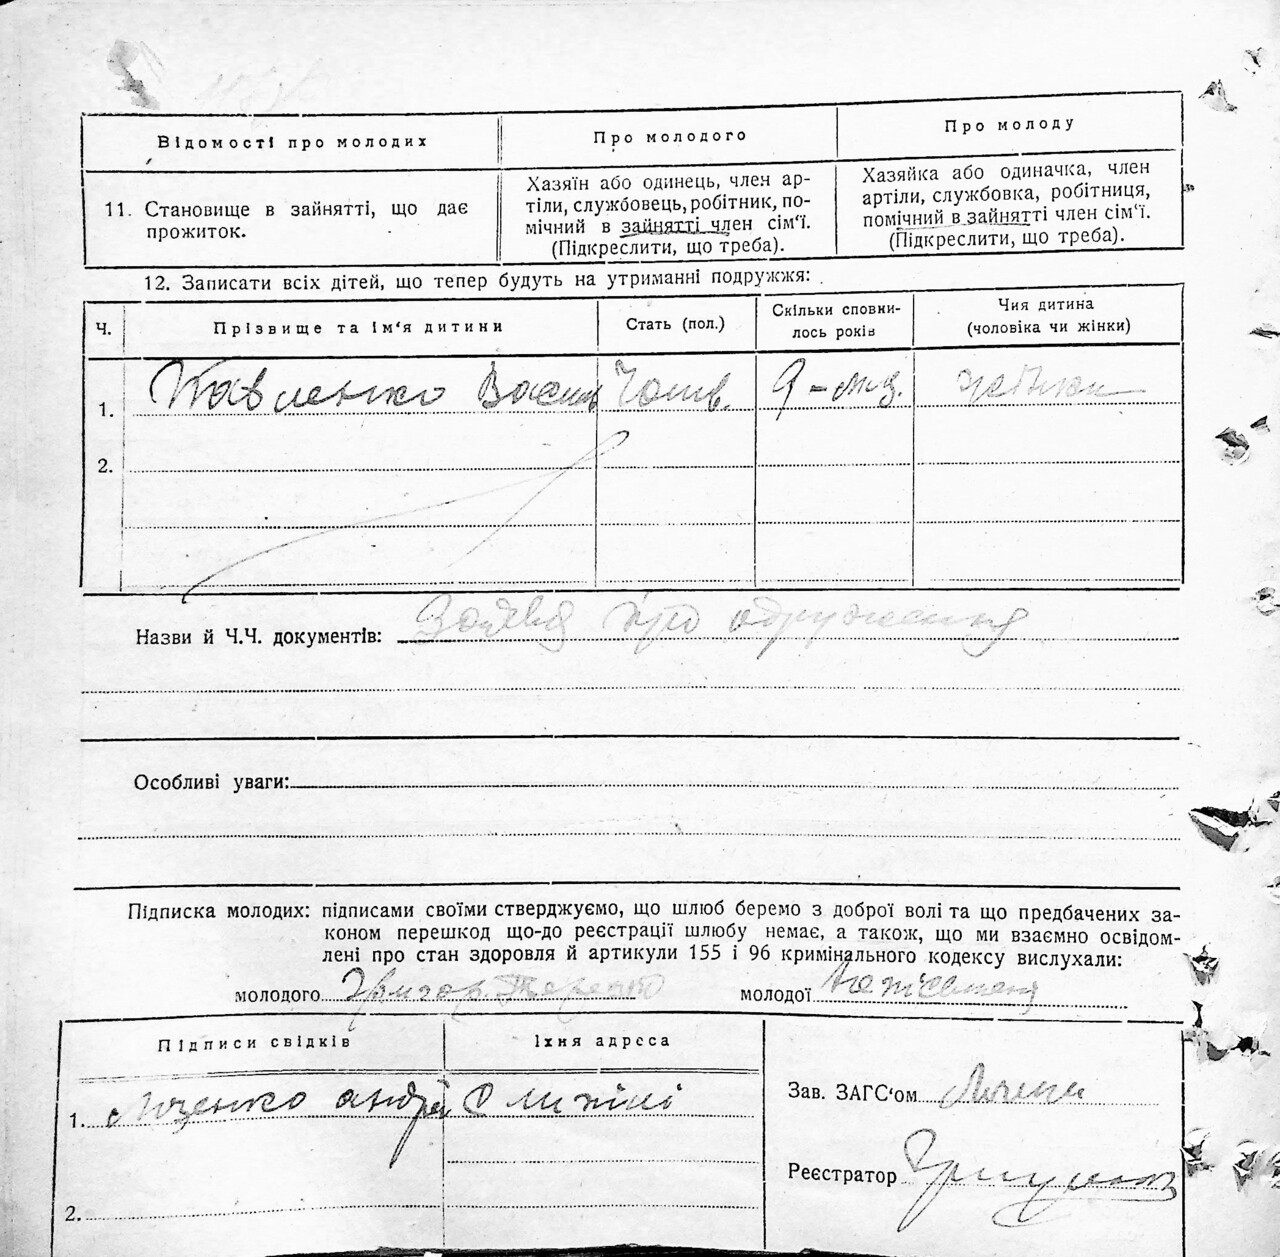 Відомості про молодих
Про молодого
Про молоду
11. Становище в зайнятті, що дає
прожиток.
Хазяїн або одинець, член ар-
тілі, службовець, робітник, по-
мічний в зайнятті член сім'ї.
(Підкреслити, що треба).
Хазяйка або одиначка, член
артіли, службовка, робітниця,
помічний в зайнятті член сім'ї.
(Підкреслити, що треба).
12. Записати всіх дітей, що тепер будуть на утриманні подружжя:
Ч.
Прізвище та ім'я дитини
Стать (пол.)
Скільки сповни-
лось років
Чия дитина
(чоловіка чи жінки)
1. Павленко Василь Чолов. 9 - міс.
2.
Назви й Ч.Ч. документів: Заява про одруження
Особливі уваги:
Підписка молодих: підписами своїми стверджуємо, що шлюб беремо з доброї волі та що предбачених за-
коном перешкод що-до реєстрації шлюбу немає, а також, що ми взаємно освідом-
лені про стан здоровля й артикули 155 і 96 кримінального кодексу вислухали:
молодого
молодої
Підписи свідків
Їхня адреса
1. андрій
Зав. ЗАГС'ом
Реєстратор
2.